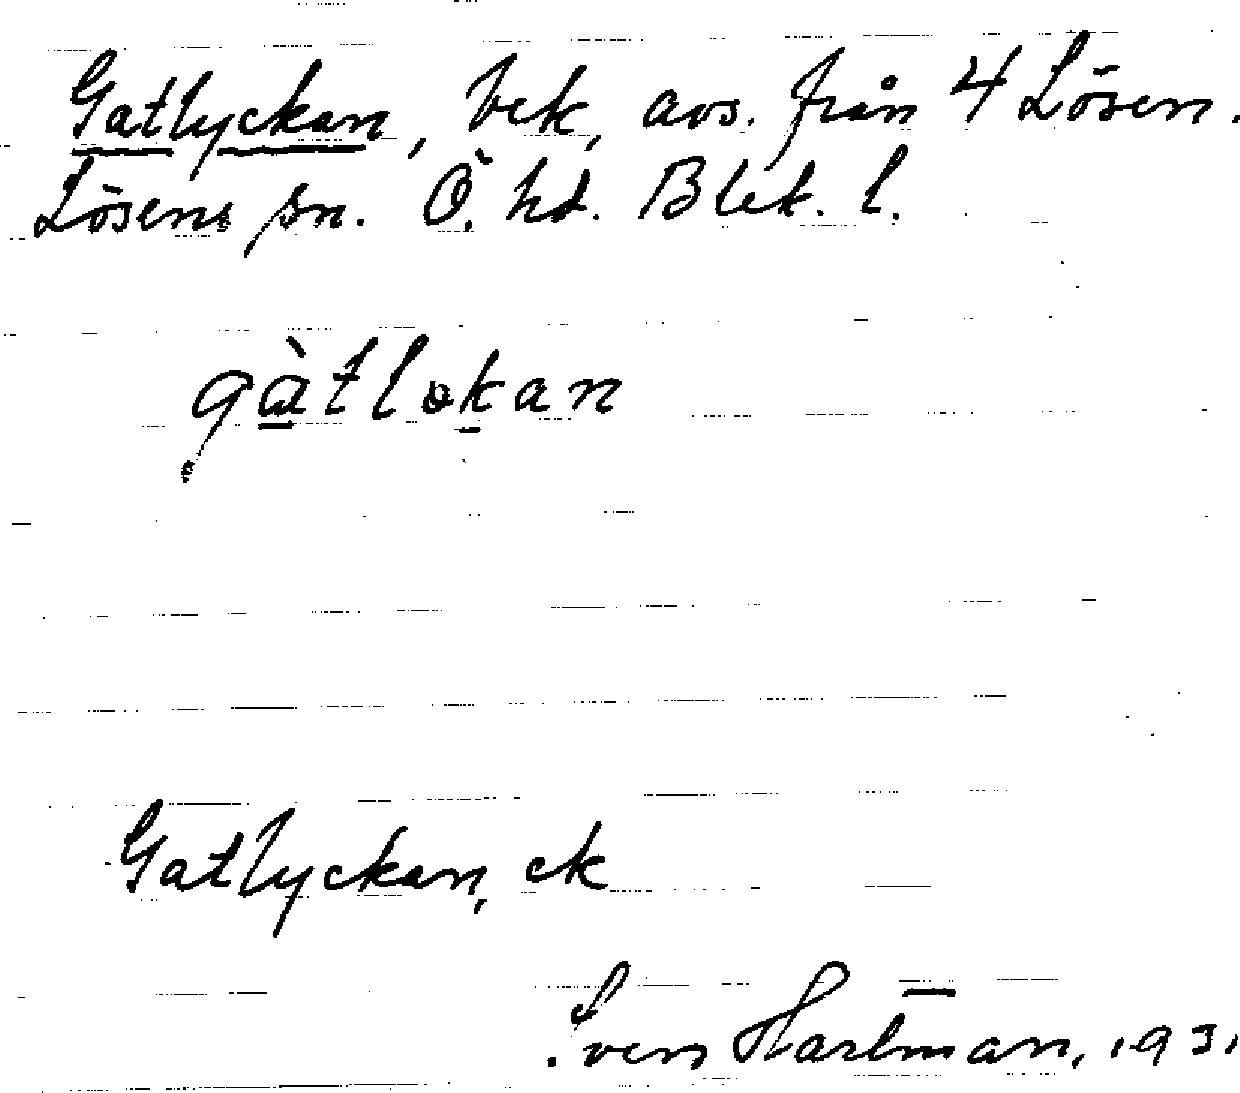 Gatlyckan, bek, avs. från 4 Lösen.
Lösens sn. Ö. hd. Blek. l.
gàtlökan
Gatlyckan, ek
Sven Hartman, 1931